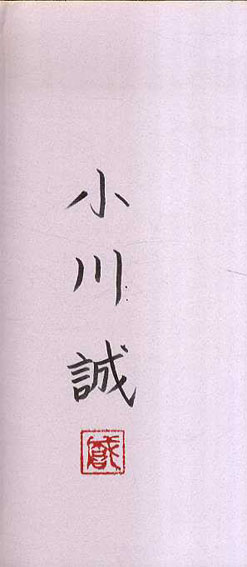 小川誠